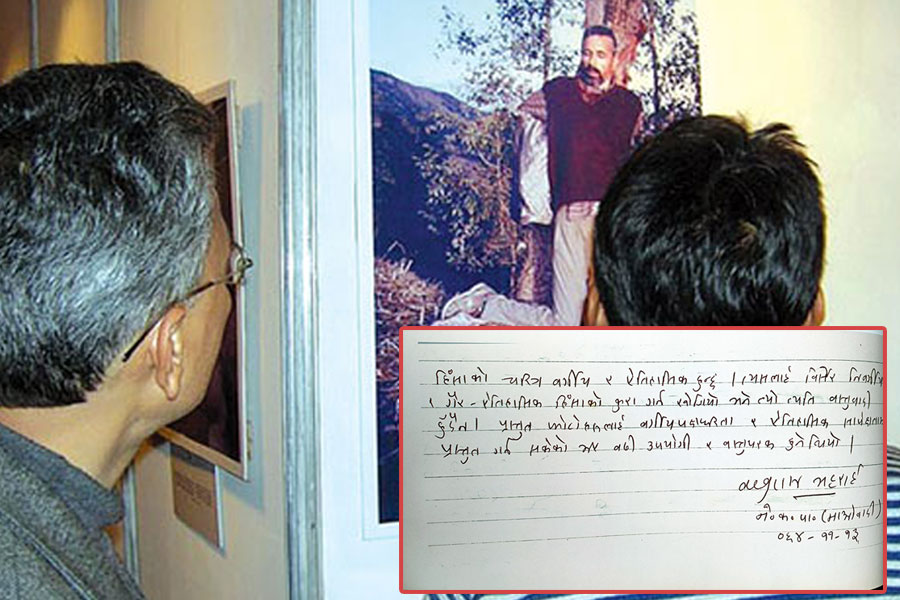 हिंसाको चरित्र वर्गीय र ऐतिहासिक हुन्छ । यसलाई
र गैर-ऐतिहासिक हिंसाको कुरा गर्न खोजियो भने त्यो त्यति वस्तुवादी
हुँदैन । प्रस्तुत फोटोहरूलाई वर्गीय पक्षधरता र ऐतिहासिक
प्रस्तुत गर्न सकेको भए बढी उपयोगी र वस्तुपरक हुने थियो ।
भट्टराई
ने॰क॰पा॰ (माओवादी)
०६४-११-१३